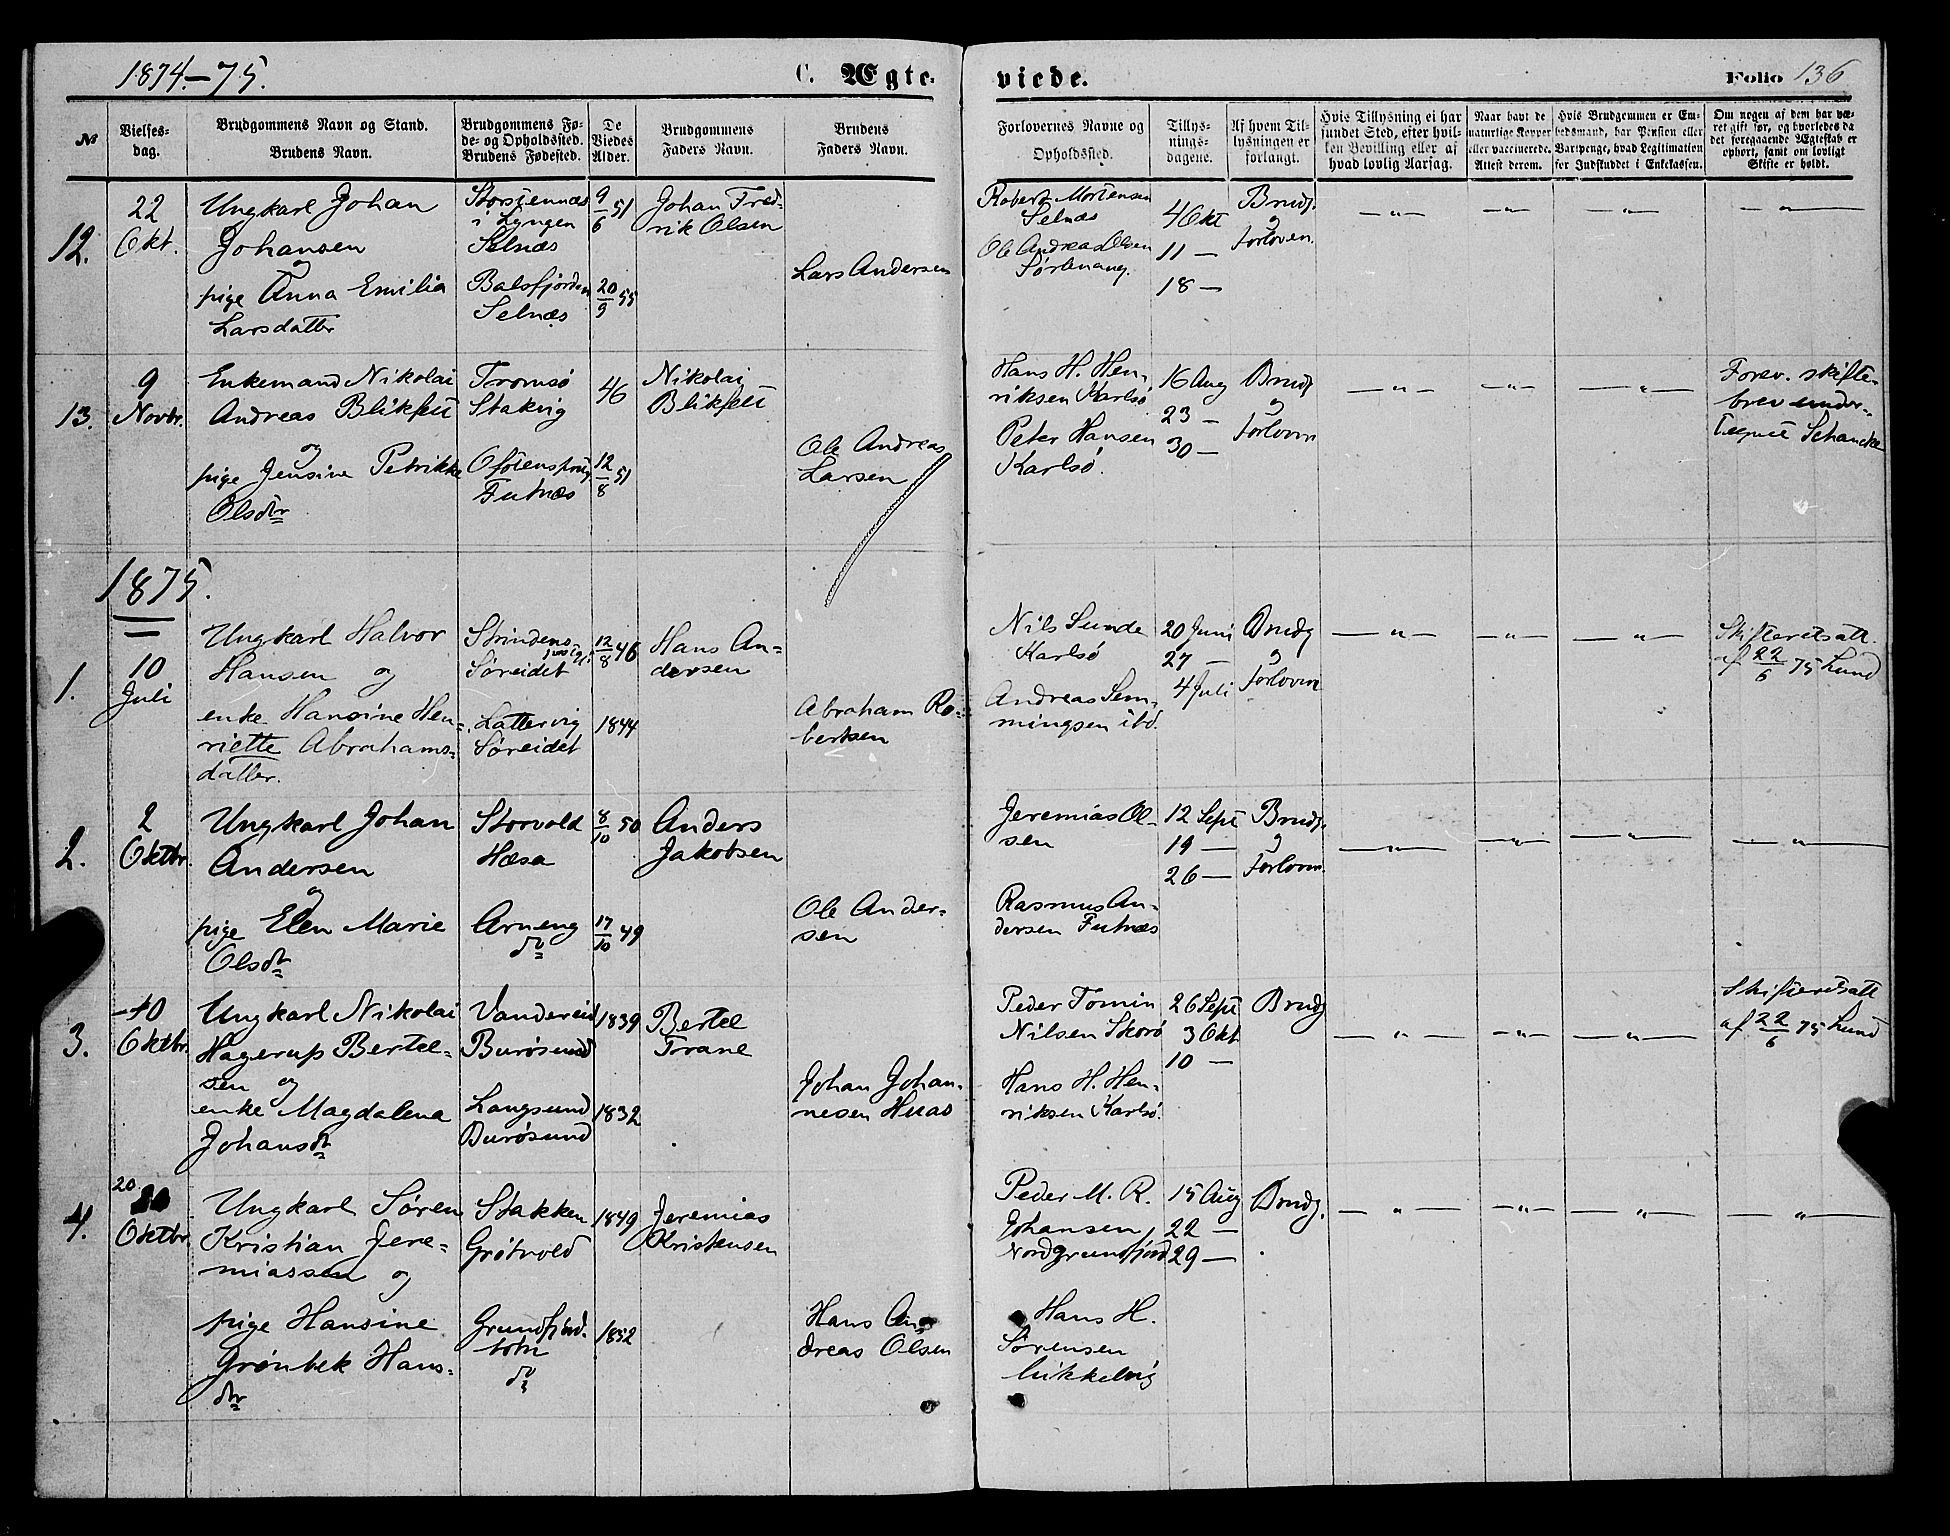 1874-75.
C. Ægte-
viede.
Folio 136
№
Vielses-
dag.
Brudgommens Navn og Stand.
Brudens Navn.
Brudgommens Fø-
de- og Opholdssted.
Brudens Fødested.
De
Viedes
Alder.
Brudgommens
Faders Navn.
Brudens
Faders Navn.
Forlovernes Navne og
Opholdssted.
Tillys-
nings-
dagene.
Af hvem Til-
lysningen er
forlangt.
Hvis Tillysning ei har
fundet Sted, efter hvil-
ken Bevilling eller af
hvad lovlig Aarsag.
Naar havt de
naturlige Kopper
eller vaccinerede.
Attest derom.
Hvis Brudgommen er Em-
bedsmand, har Pension eller
Vartpenge, hvad Legitimation
for Indskuddet i Enkekassen.
Om nogen af dem har væ-
ret gift før, og hvorledes da
det foregaaende Ægteskab er
ophørt, samt om lovligt
Skifte er holdt.
12.
22
Okt.
Ungkarl Johan
Johansen
og
pige Anna Emilia
Larsdatter
Storstennæs
i Lyngen
Selnæs
Balsfjorden
Selnæs
9/6 51
20/9 55
Johan Fred-
rik Olsen
Lars Andersen
Robert Mortensen
Selnæs
Ole Andreas Olsen
Sørlenang.
4 Okt
11 —
18 —
Brudg.
og
Forloven.
— " —
— " —
— " —
— " —
13.
9
Novbr.
Enkemand Nikolai
Andreas Blikfelt
og
pige Jensine Petrikke
Olsdtr
Tromsø
Stakvig
Futnæs
46
12/8 51
Nikolai
Blikfelt
Ole Andreas
Larsen
Hans H. Hen-
riksen Karlsø
Peter Hansen
Karlsø.
16 Aug
23 —
30 —
Brudg
og
Forloven
— " —
— " —
— " —
Forev. skifte-
brev under-
tegnet Schancke
1875.
1.
10
Juli
Ungkarl Halvor
Hansen og
enke Hansine Hen-
riette Abrahams-
datter.
Strindens
Søreidet
Lattervig
Søreidet
12/8 46
1844
Hans An-
dersen
Abraham Ro-
bertsen
Nils Sunde
Karlsø
Andreas Sem-
mingsen ibd
20 Juni
27 —
4 Juli
Brudg
og
Forloven
— " —
— " —
— " —
Skifteretsatt.
af 22/6 75 Lund
2.
2
Oktbr.
Ungkarl Johan
Andersen
og
pige Elen Marie
Olsdt
Storvold
Hæsa
Arneng
do
8/10 50
17/10 49
Anders
Jakobsen
Ole Ander-
sen
Jeremias Ol-
sen
Rasmus An-
dersen Futnæs
12 Sept
19 —
26 —
Brudg.
og
Forloven.
— " —
— " —
— " —
— " —
3.
10
Oktbr.
Ungkarl Nikolai
Hagerup Bertel-
sen og
enke Magdalena
Johansdt
Vandereid
Burøsund
Langsund
Burøsund
1839
1832
Bertel
Trane
Johan Johan-
nesen Huas
Peder Tomin
Nilsen Skorø
Hans H. Hen-
riksen Karlsø.
26 Sept
3 Okt
10 —
Brudg
— " —
— " —
— " —
Skifteretsatt
af 22/6 75 Lund
4.
20
Oktbr.
Ungkarl Søren
Kristian Jere-
miassen og
pige Hansine
Grønbek Hans-
dtr
Stakken
Grøtvold
Grundfjord-
botn
do
1849
1852
Jeremias
Kristensen
Hans An-
dreas Olsen
Peder M. R.
Johansen,
Nordgrundfjord
Hans H.
Sørensen
Mikkelvig
15 Aug
22 —
29 —
Brudg.
— " —
— " —
— " —
— " —